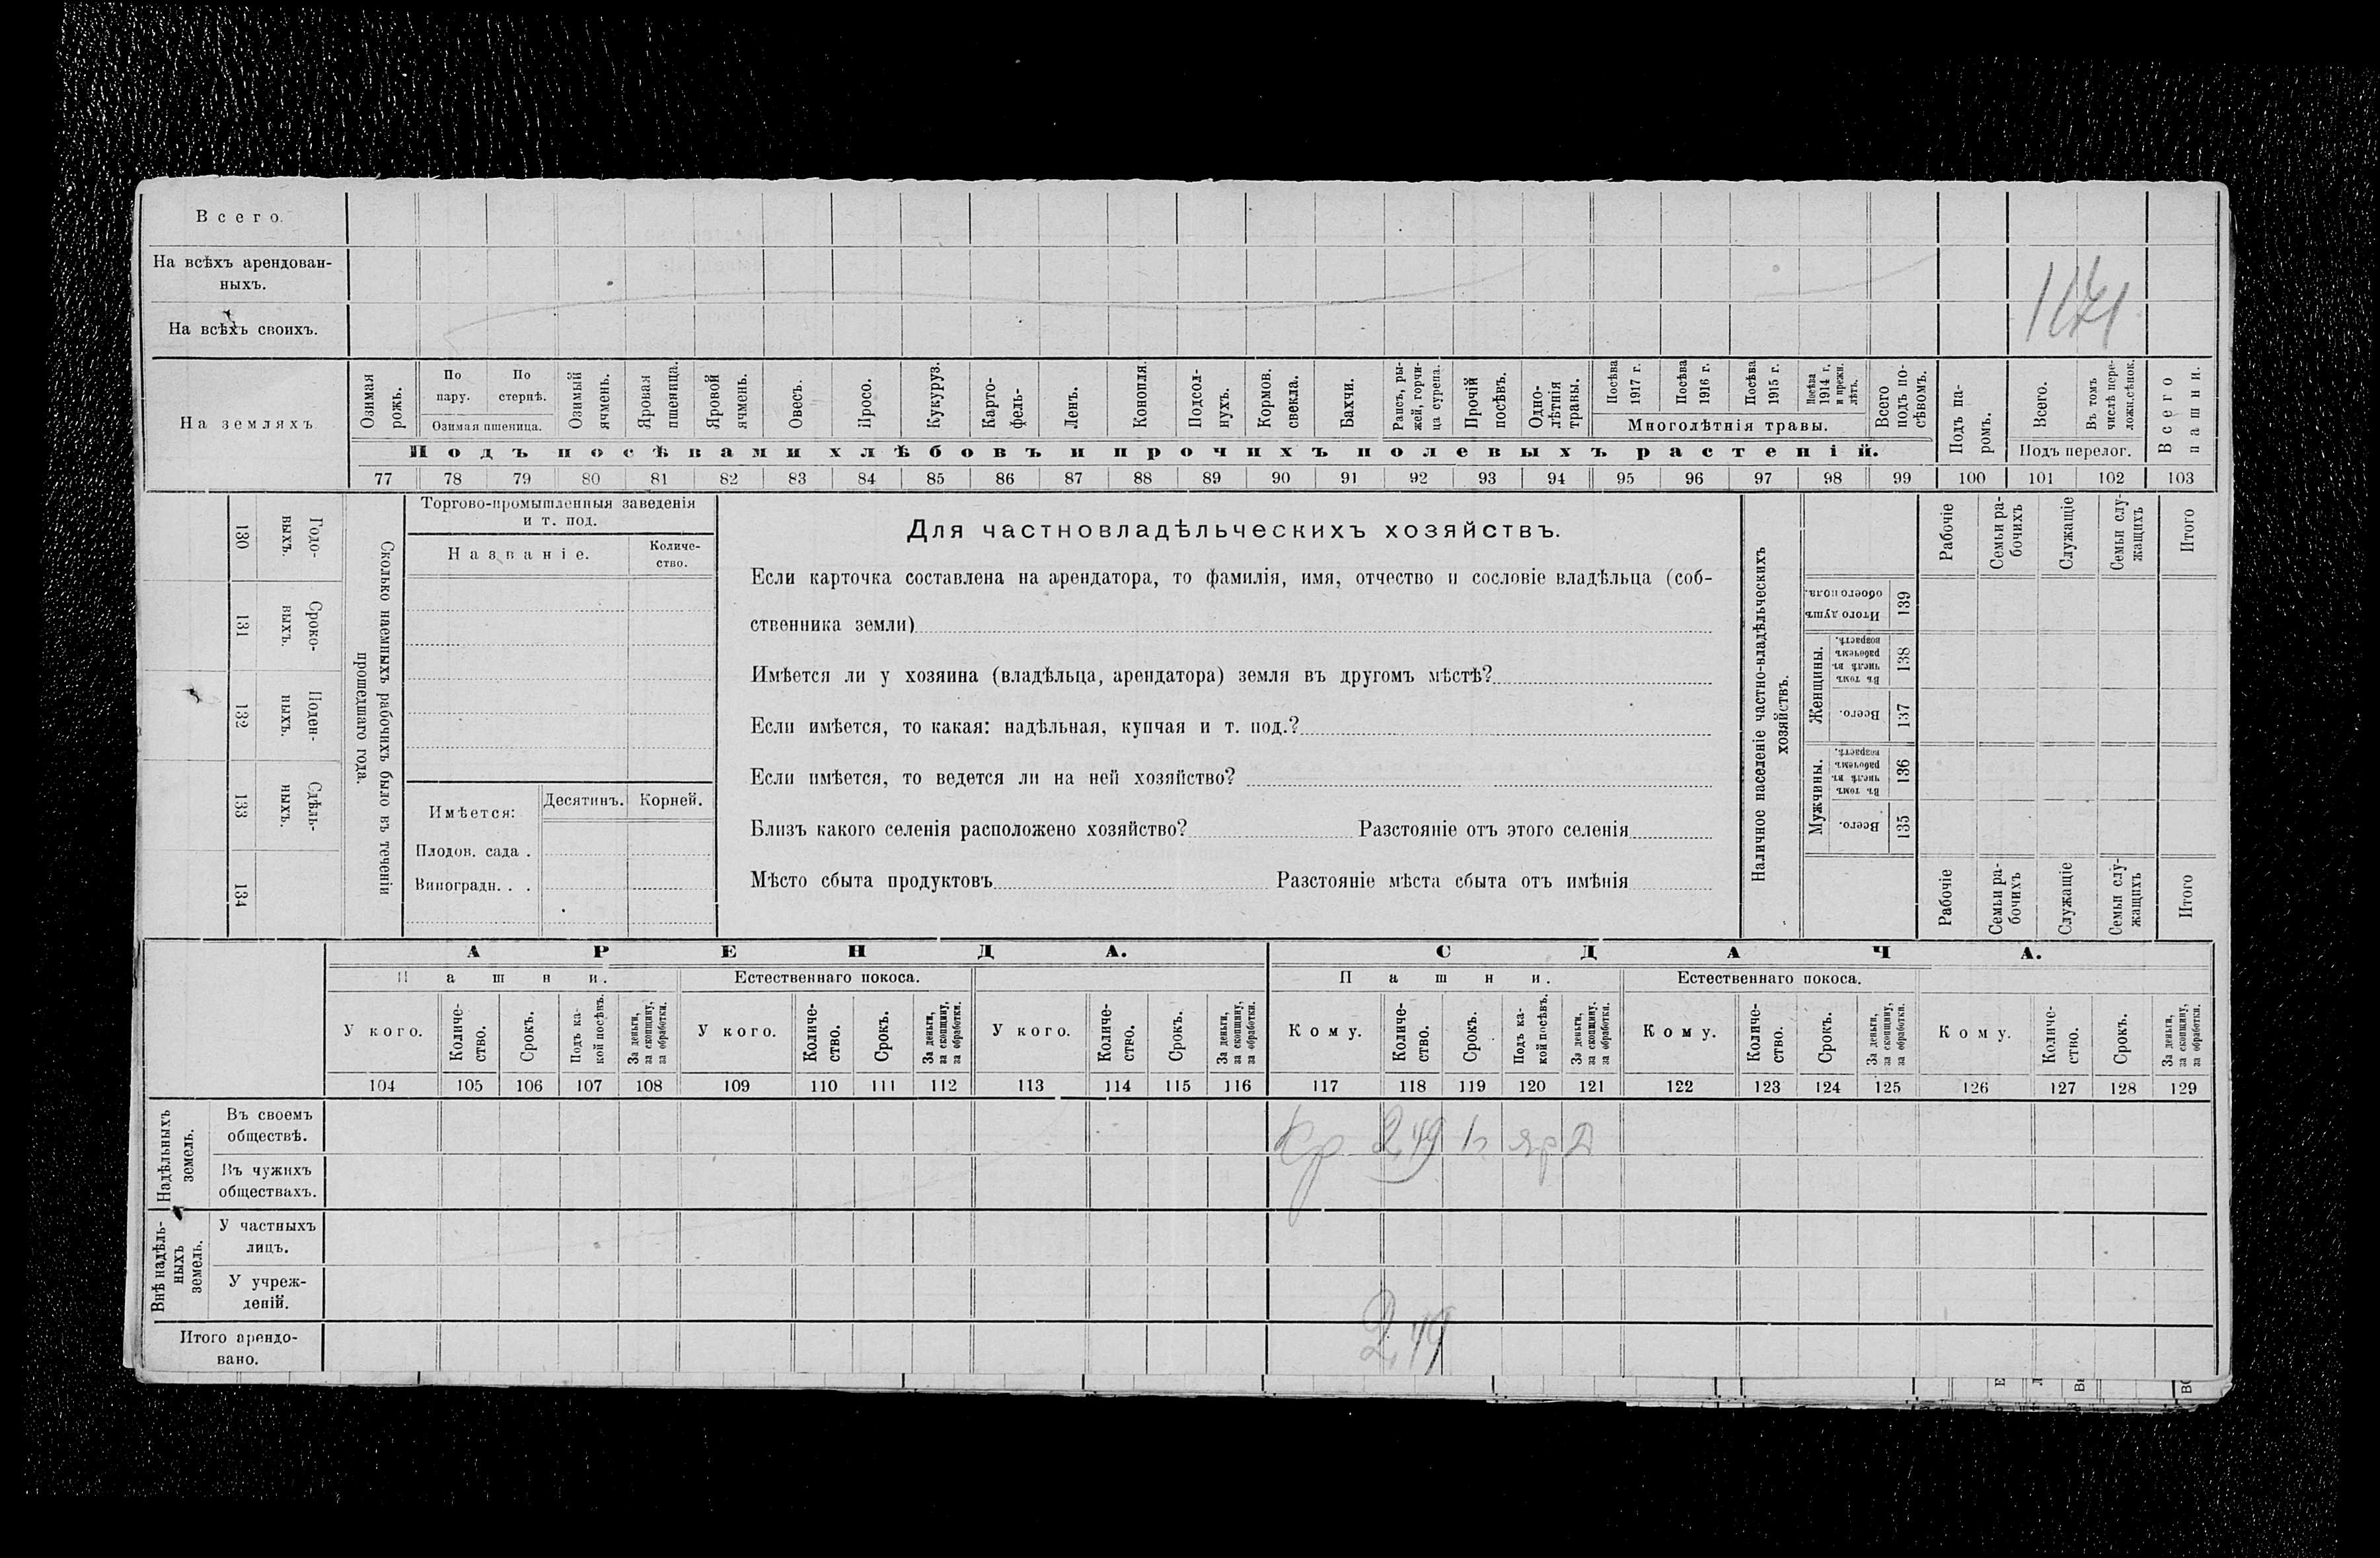 Всего.
На всѣхъ арендован-
ныхъ.
На всѣхъ своихъ.
На земляхъ
Озимая рожь.
По пару.
По стернѣ.
Озимая пшеница.
Озимый ячмень.
Яровая пшеница.
Яровой ячмень.
Овесъ.
Просо.
Кукуруз.
Карто-
фель-
Ленъ.
Конопля.
Подсол-
нухъ.
Кормов. свекла.
Бахчи.
Рапсъ, ры-
жей, горчи-
ца сурепа.
Прочій посѣвъ.
Одно-
лѣтнія травы.
Посѣва 1917 г.
Посѣва 1916 г.
Посѣва 1915 г.
Посѣва 1914 г. и прежн. лѣтъ.
Многолѣтнія травы.
Всего подъ по-
сѣвомъ.
Подъ па-
ромъ.
Всего.
Въ томъ числѣ пере-
ложн.сѣнок.
Подъ перелог.
Всего пашни.
Подъ посѣвами хлѣбовъ и прочихъ полевыхъ растеній.
77 78 79 80 81 82 83 84 85 86 87 88 89 90 91 92 93 94 95 96 97 98 99 100 101 102 103
Сколько наемныхъ рабочихъ было въ теченіи
прошедшаго года.
Годо-
выхъ.
130
Сроко-
выхъ.
131
Поден-
ныхъ.
132
Сдѣль-
ныхъ.
133
134
Торгово-промышленныя заведенія
и т. под.
Названіе.
Количе-
ство.
Имѣется:
Десятинъ.
Корней.
Плодов. сада .
Виноградн. . .
Для частновладѣльческихъ хозяйствъ.
Если карточка составлена на арендатора, то фамилія, имя, отчество и сословіе владѣльца (соб-
ственника земли)
Имѣется ли у хозяина (владѣльца, арендатора) земля въ другомъ мѣстѣ?
Если имѣется, то какая: надѣльная, купчая и т. под.?
Если имѣется, то ведется ли на ней хозяйство?
Близъ какого селенія расположено хозяйство? Разстояніе отъ этого селенія
Мѣсто сбыта продуктовъ Разстояніе мѣста сбыта отъ имѣнія
Наличное населеніе частно-владѣльческихъ
хозяйствъ.
Рабочіе
Семьи ра-
бочихъ
Служащіе
Семьи слу-
жащихъ
Итого
Итого душъ
обоего пола.
139
Женщины.
Въ томъ числѣ въ рабочемъ возрастѣ.
138
Всего.
137
Мужчины.
Въ томъ числѣ въ рабочемъ возрастѣ.
136
Всего.
135
Рабочіе
Семьи ра-
бочихъ
Служащіе
Семьи слу-
жащихъ
Итого
АРЕНДА. СДАЧА.
Пашни. Естественнаго покоса. Пашни. Естественнаго покоса.
У кого.
Количе-
ство.
Срокъ.
Подъ ка-
кой посѣвъ.
За деньги, за скопщину, за обработки.
У кого.
Количе-
ство.
Срокъ.
За деньги, за скопщину, за обработки.
У кого.
Количе-
ство.
Срокъ.
За деньги, за скопщину, за обработки.
Кому.
Количе-
ство.
Срокъ.
Подъ ка-
кой посѣвъ.
За деньги, за скопщину, за обработки.
Кому.
Количе-
ство.
Срокъ.
За деньги, за скопщину, за обработки.
Кому.
Количе-
ство.
Срокъ.
За деньги, за скопщину, за обработки.
104 105 106 107 108 109 110 111 112 113 114 115 116 117 118 119 120 121 122 123 124 125 126 127 128 129
Надѣльныхъ
земель.
Въ своемъ
обществѣ.
Кр 2,49 1г яр Д
Въ чужихъ
обществахъ.
Внѣ надѣль-
ныхъ
земель.
У частныхъ
лицъ.
У учреж-
деній.
Итого арендо-
вано.
2,49